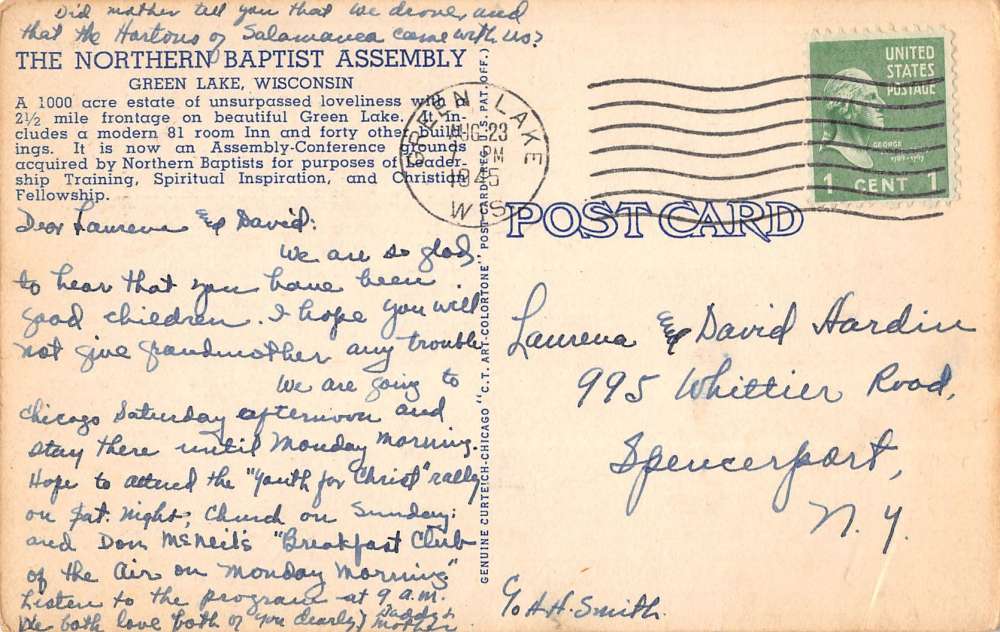 Did mother tell you that we drove, and
that the Hortons of Salamanca came with us?
THE NORTHERN BAPTIST ASSEMBLY
GREEN LAKE, WISCONSIN
A 1000 acre estate of unsurpassed loveliness with a
2½ mile frontage on beautiful Green Lake. It in-
cludes a modern 81 room Inn and forty other build-
ings. It is now an Assembly-Conference Grounds
acquired by Northern Baptists for purposes of Leader-
ship Training, Spiritual Inspiration, and Christian
Fellowship.
Dear Laurena & David:
We are so glad
to hear that you have been
good children. I hope you will
not give grandmother any trouble
We are going to
Chicago Saturday afternoon and
stay there until Monday morning.
Hope to attend the "Youth for Christ" rally
on Sat. night; Church on Sunday;
and Don McNeil's "Breakfast Club
of the Air on Monday Morning"
Listen to the program at 9 a.m.
We both love both of you dearly,
Daddy &
Mother
GENUINE CURTEICH-CHICAGO "C.T. ART-COLORTONE" POST CARD (REG. U.S. PAT. OFF.)
GREEN LAKE
AUG 23
PM
1945
WIS
UNITED
STATES
POSTAGE
GEORGE
1 CENT 1
POST CARD
Laurena & David Hardin
995 Whittier Road,
Spencerport,
N.Y.
c/o H.H. Smith